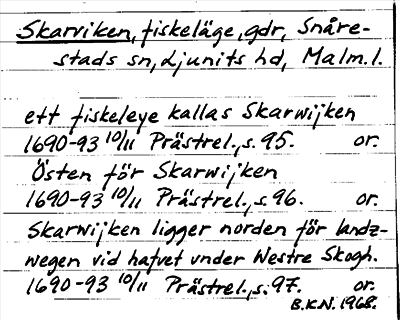 Skarviken, fiskeläge, gdr, Snåre-
stads sn, Ljunits hd, Malm. l.
ett fiskeleye kallas Skarwijken
1690-93 10/11 Prästrel., s. 95. or.
Östen för Skarwijken
1690-93 10/11 Prästrel., s. 96. or.
Skarwijken ligger norden för landz-
wegen vid hafvet under Westre Skogh.
1690-93 10/11 Prästrel., s. 97. or.
B.K.N. 1968.